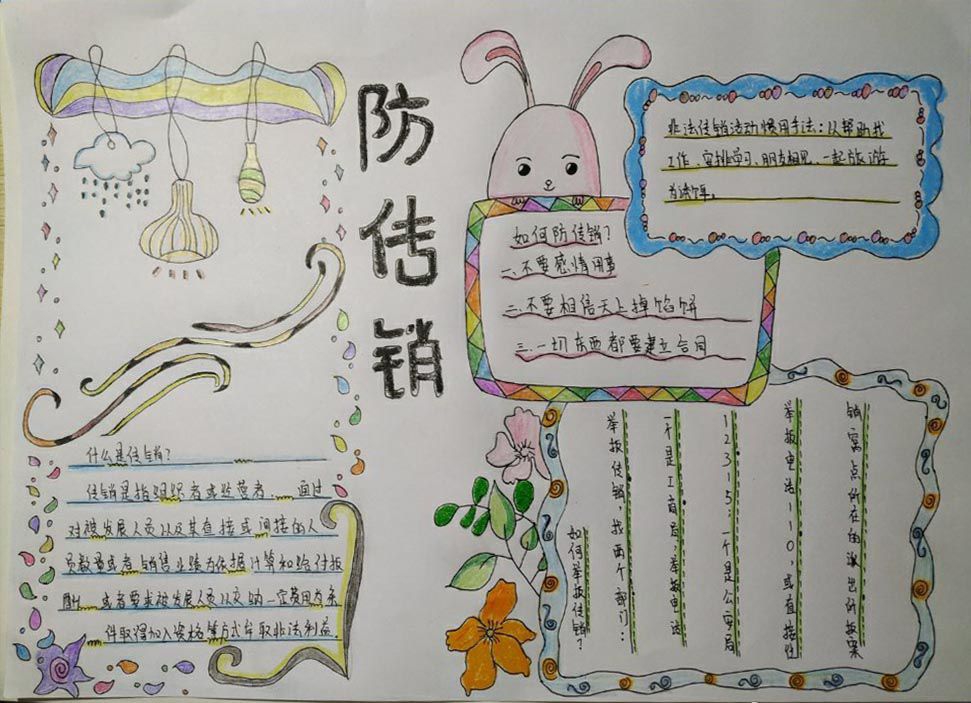 防传销
什么是传销?
传销是指组织者或经营者,通过
对被发展人员以及其直接或间接的人
员数量或者销售业绩为依据计算和给付报
酬,或者要求被发展人员以交纳一定费用为条
件取得加入资格等方式牟取非法利益.
如何防传销?
一.不要感情用事
二.不要相信天上掉馅饼
三.一切东西都要建立合同
非法传销活动惯用手法:以帮助找
工作、安排学习、朋友相见、一起旅游
为诱饵。
如何举报传销?
举报传销,找两个部门:
一个是工商局;举报电话
12315;一个是公安局
举报电话110,或直接往
销窝点所在的派出所报案